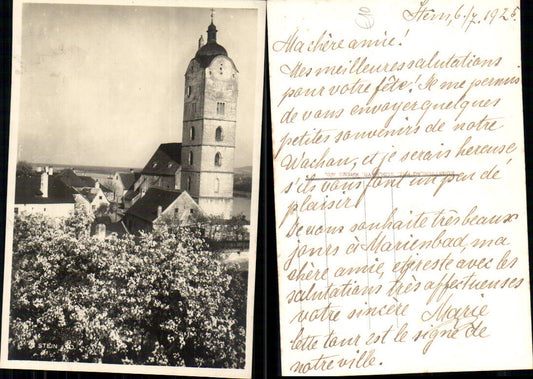 STEIN a.D.
Stein, 6./7. 1925.
Ma chère amie!
Mes meilleures salutations
pour votre fête! Je me permis
de vous envoyer quelques
petites souvenirs de notre
Wachau, et je serais hereuse
s'ils vous font un peu de
plaisir!
Je vous souhaite très beaux
jours à Marienbad, ma
chère amie, et je reste avec les
salutations très affectueuses
votre sincère Marie
Cette tour est le signe de
notre ville.